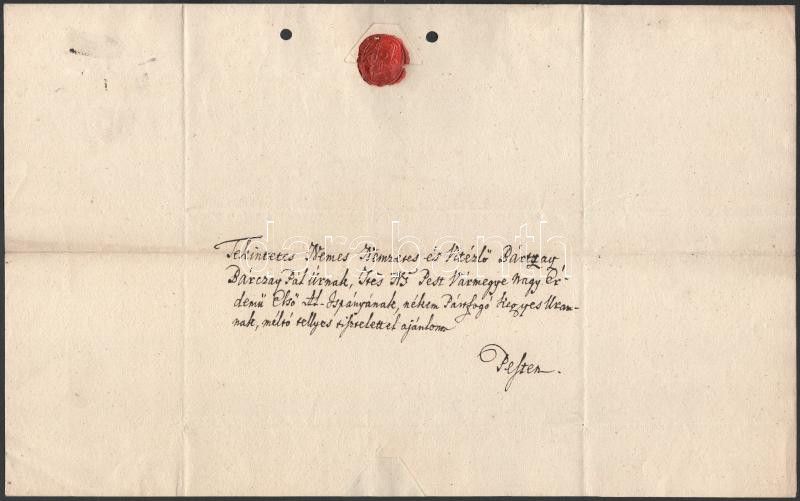 Tekintetes Nemes Nemzetes és Vitézlő Bártzay
Bárczay Pál úrnak, Ttes Ns Pest Vármegye Nagy Ér-
demű Első Al-Ispányának, nékem Pártfogó Kegyes Uram-
nak, méltó tellyes tisztelettel ajánlom
Pesten.
darabanth